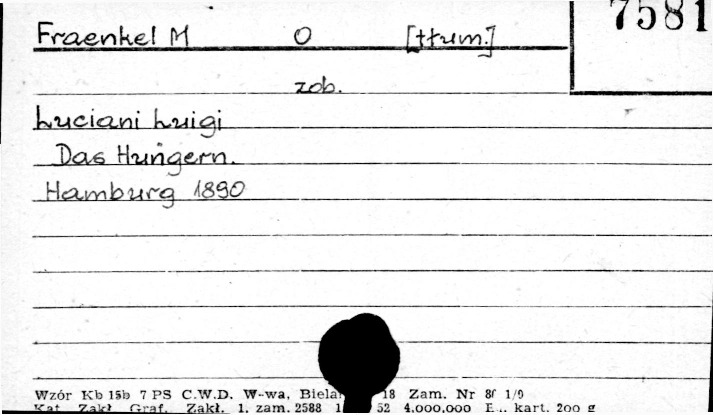 7581
Fraenkel M O [tłum.]
zob.
Luciani Luigi
Das Hungern.
Hamburg 1890
Wzór Kb 15b 7 PS C.W.D. W-wa, 18 Zam. Nr 1/9
Kat. Zakł. Graf. Zakł. 1, zam. 2588 52 4.000.000 kart. 200 g